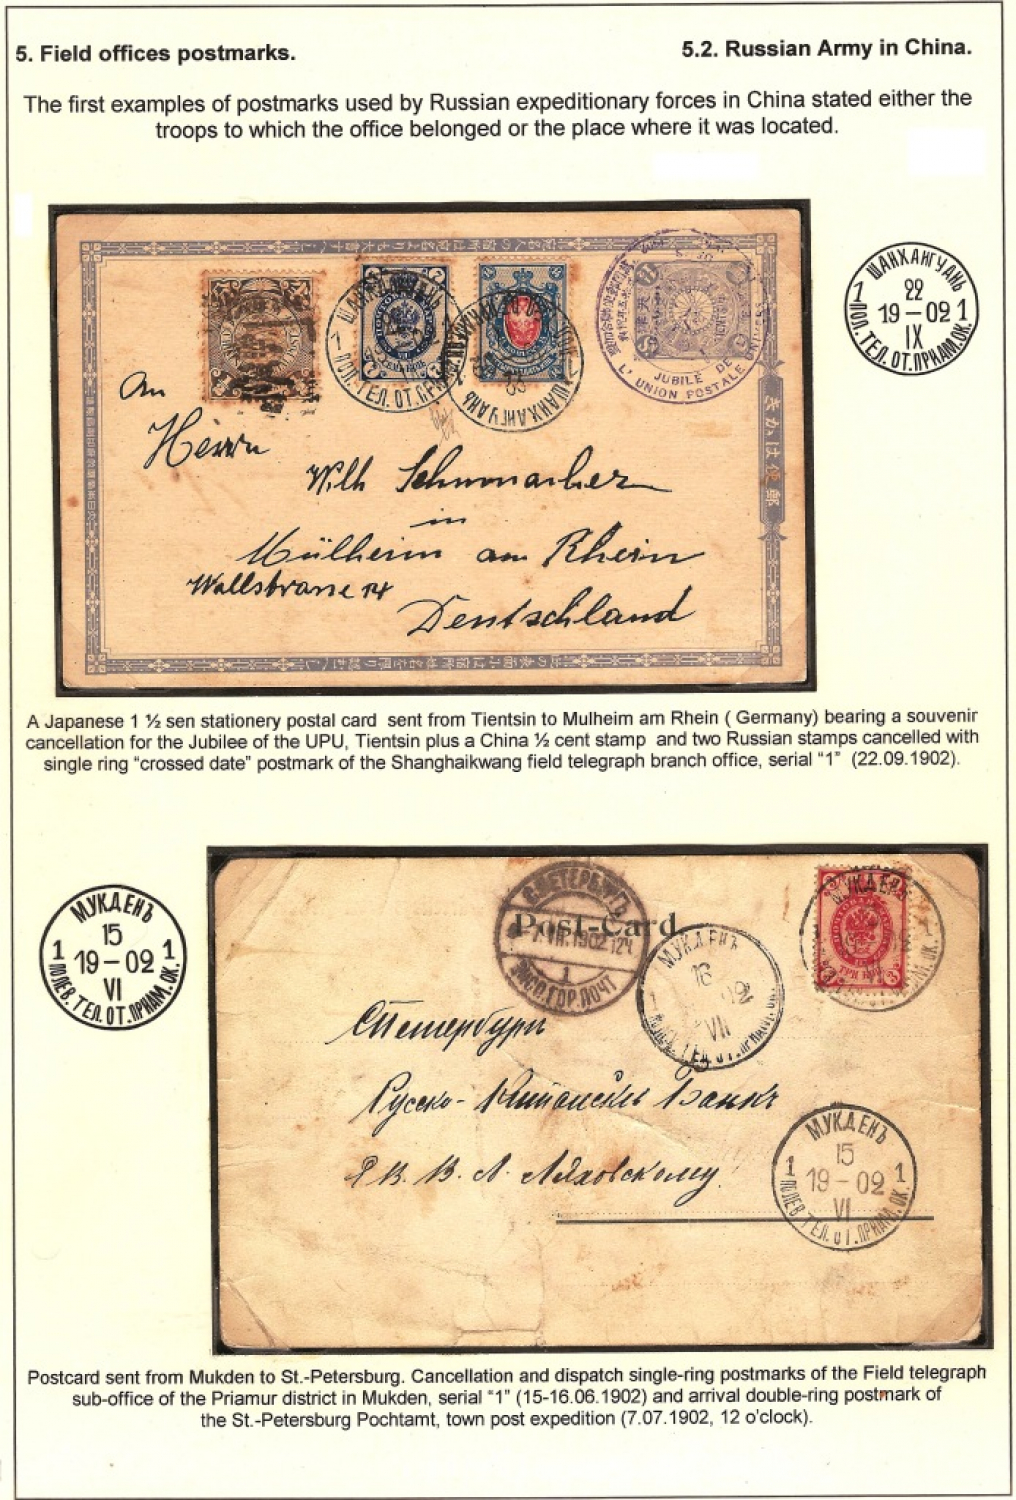 5. Field offices postmarks.
5.2. Russian Army in China.
The first examples of postmarks used by Russian expeditionary forces in China stated either the
troops to which the office belonged or the place where it was located.
ШАНХАНГУАНЬ
22
1 19-02 1
IX
ПОЛ. ТЕЛ. ОТ. ПРИАМ. ОК.
JUBILÉ DE
L'UNION POSTALE
An
Herrn
Wilh Schumacher
in
Mülheim am Rhein
Wallstrasse 14
Deutschland
A Japanese 1 ½ sen stationery postal card sent from Tientsin to Mulheim am Rhein ( Germany) bearing a souvenir
cancellation for the Jubilee of the UPU, Tientsin plus a China ½ cent stamp and two Russian stamps cancelled with
single ring “crossed date” postmark of the Shanghaikwang field telegraph branch office, serial “1” (22.09.1902).
МУКДЕНЪ
15
1 19-02 1
VI
ПОЛЕВ. ТЕЛ. ОТ. ПРИАМ. ОК.
С.ПЕТЕРБУРГЪ
7.VII.1902.12Ч
1
ЭКСП.ГОР.ПОЧТ
Post-Card
МУКДЕНЪ
16
02
VI
МУКДЕНЪ
ТРИ КОП.
С Петербургъ
Русско-Китайскiй Банкъ
В. А. Ляховскому
МУКДЕНЪ
15
1 19-02 1
VI
ПОЛЕВ. ТЕЛ. ОТ. ПРИАМ. ОК.
Postcard sent from Mukden to St.-Petersburg. Cancellation and dispatch single-ring postmarks of the Field telegraph
sub-office of the Priamur district in Mukden, serial “1” (15-16.06.1902) and arrival double-ring postmark of
the St.-Petersburg Pochtamt, town post expedition (7.07.1902, 12 o'clock).